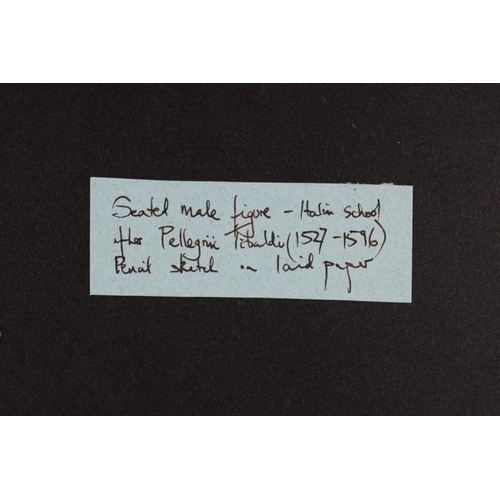 Seated male figure - Italin school
after Pellegrii Tibaldi (1527-1596)
Pencil sketch on laid paper